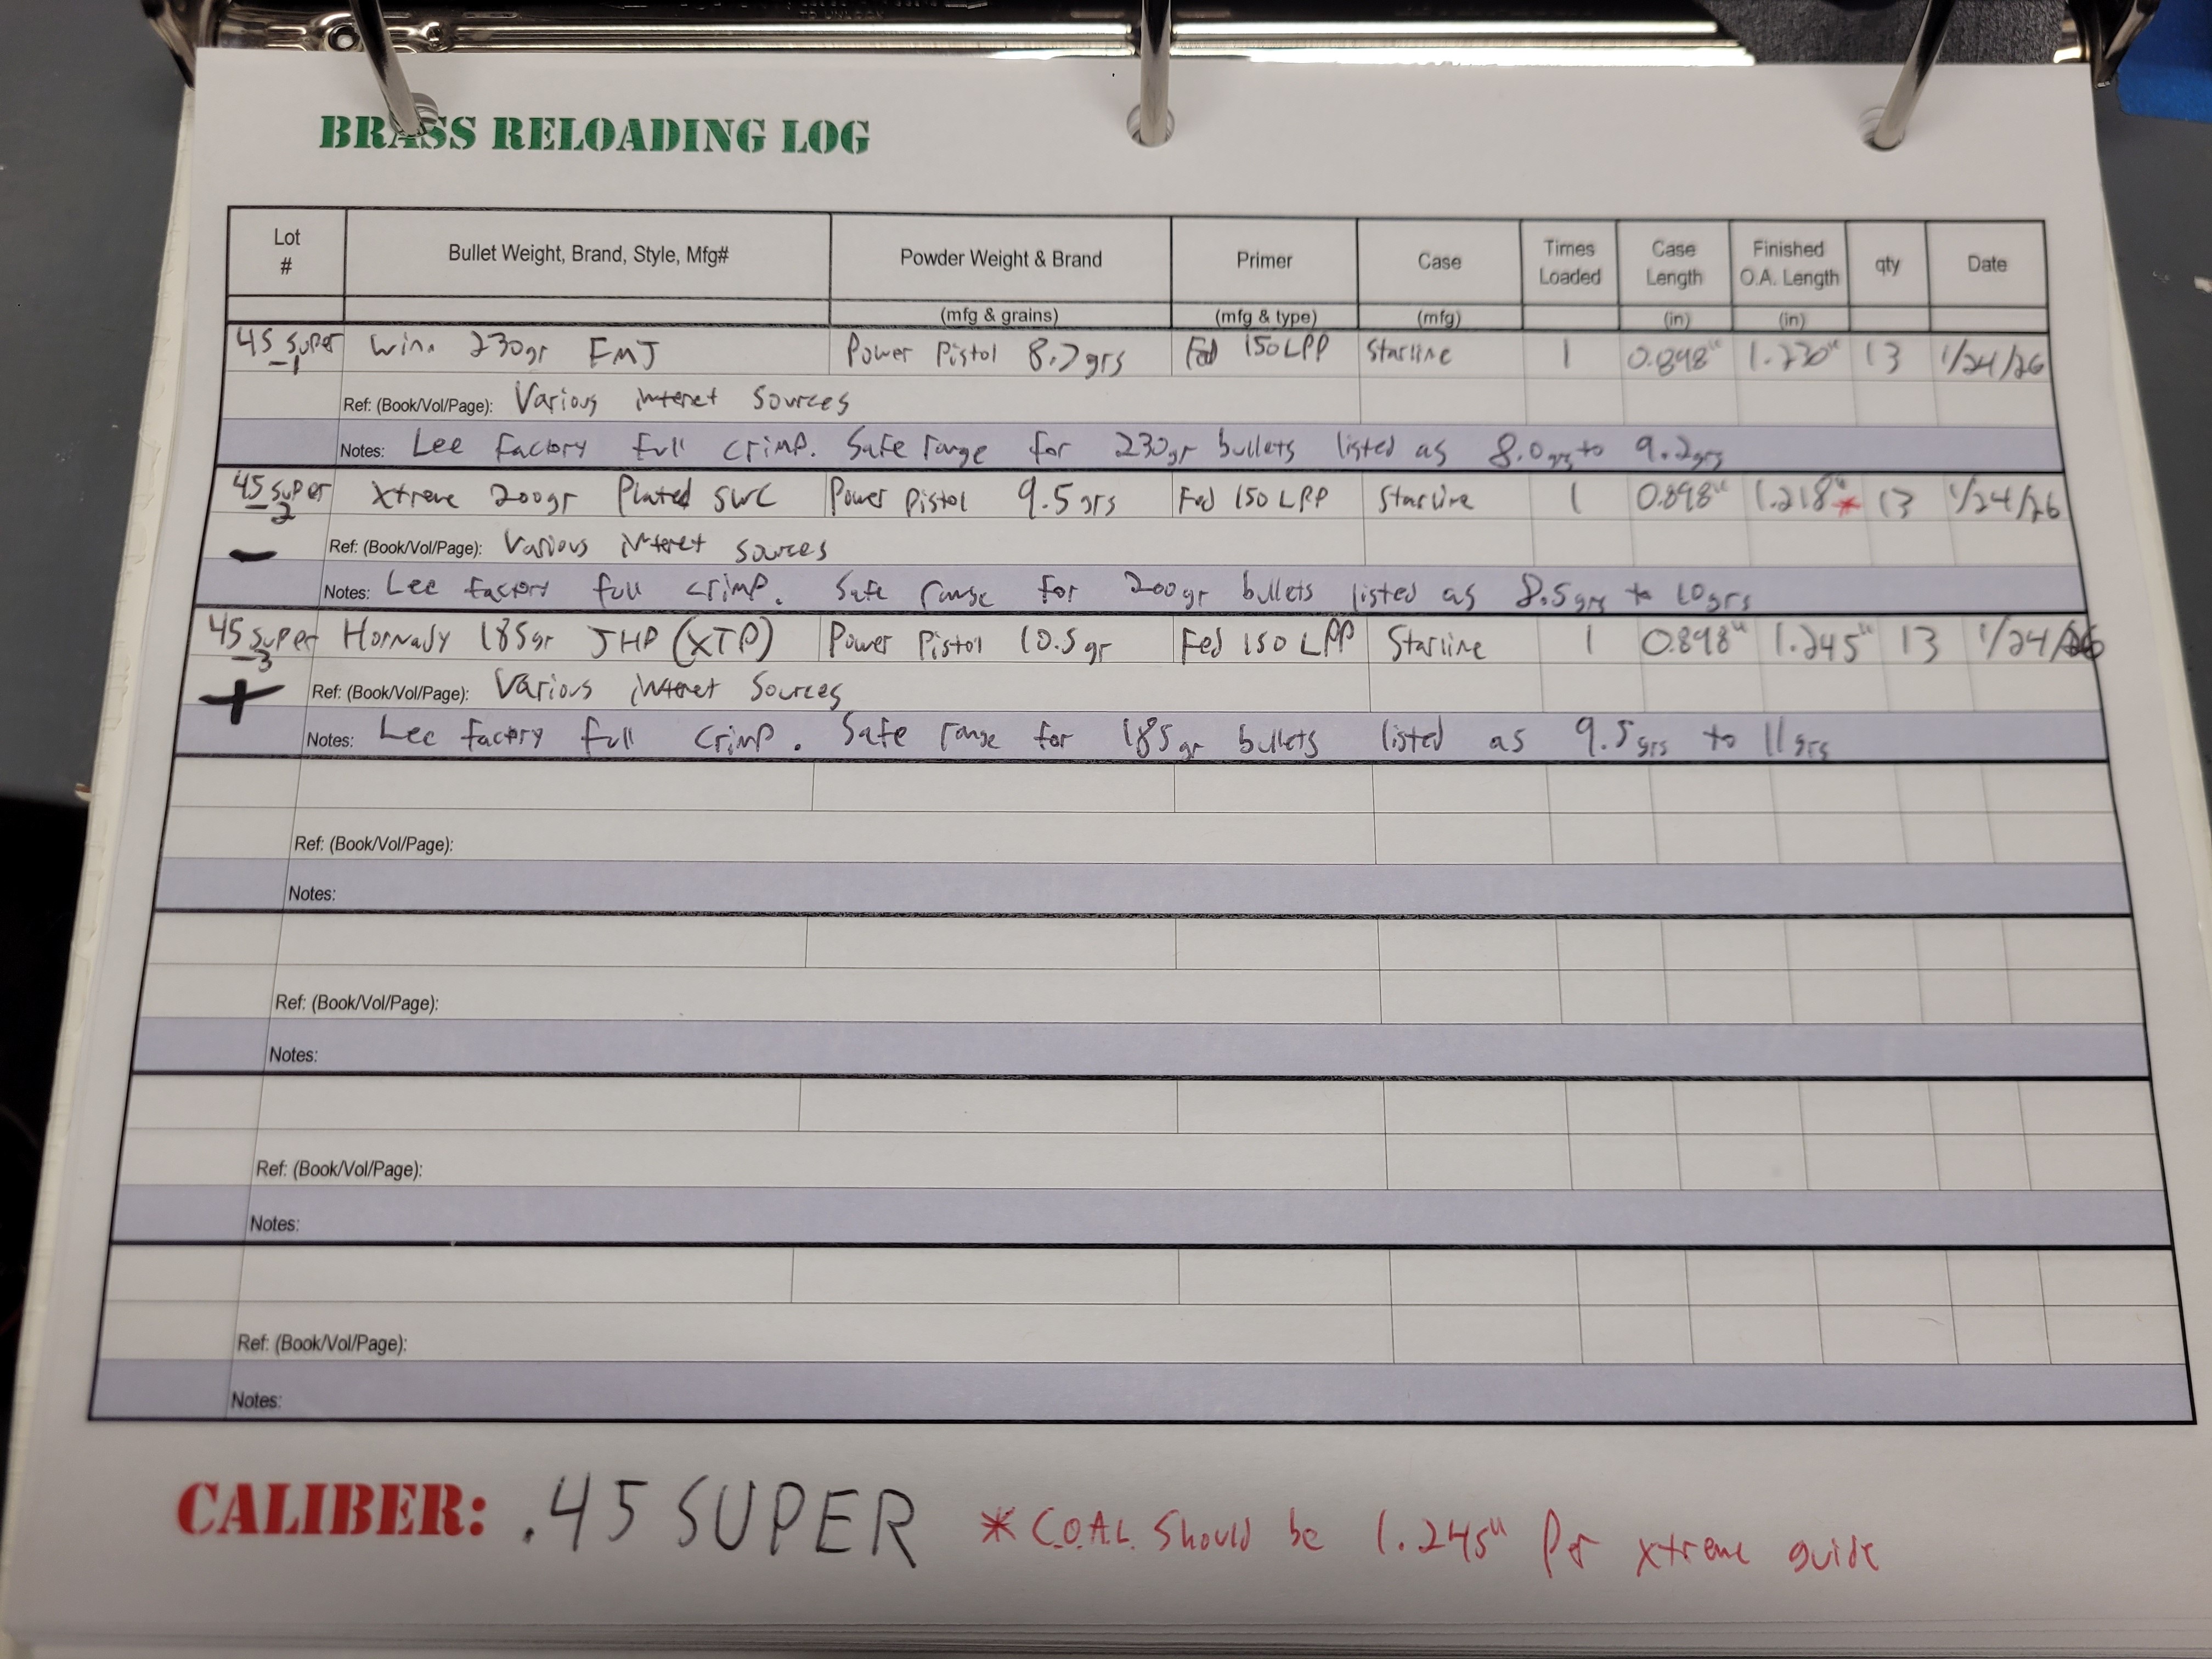 BRASS RELOADING LOG
Lot # Bullet Weight, Brand, Style, Mfg# Powder Weight & Brand Primer Case Times Loaded Case Length Finished O.A. Length qty Date
(mfg & grains) (mfg & type) (mfg) (in) (in)
45 Super -1 Win. 230gr FMJ Power Pistol 8.7grs Fed 150LPP Starline 1 0.898" 1.230" 13 1/24/26
Ref: (Book/Vol/Page): Various internet sources
Notes: Lee factory full crimp. Safe range for 230gr bullets listed as 8.0grs to 9.2grs
45 Super -2 Xtreme 200gr Plated SWC Power Pistol 9.5grs Fed 150LPP Starline 1 0.898" 1.218"* 13 1/24/26
- Ref: (Book/Vol/Page): Various internet sources
Notes: Lee factory full crimp. Safe range for 200gr bullets listed as 8.5grs to 10grs
45 Super -3 Hornady 185gr JHP (XTP) Power Pistol 10.5gr Fed 150LPP Starline 1 0.898" 1.245" 13 1/24/26
+ Ref: (Book/Vol/Page): Various internet sources
Notes: Lee factory full crimp. Safe range for 185gr bullets listed as 9.5grs to 11grs
Ref: (Book/Vol/Page):
Notes:
Ref: (Book/Vol/Page):
Notes:
Ref: (Book/Vol/Page):
Notes:
Ref: (Book/Vol/Page):
Notes:
CALIBER: .45 SUPER *C.O.A.L. Should be 1.245" Per xtreme guide